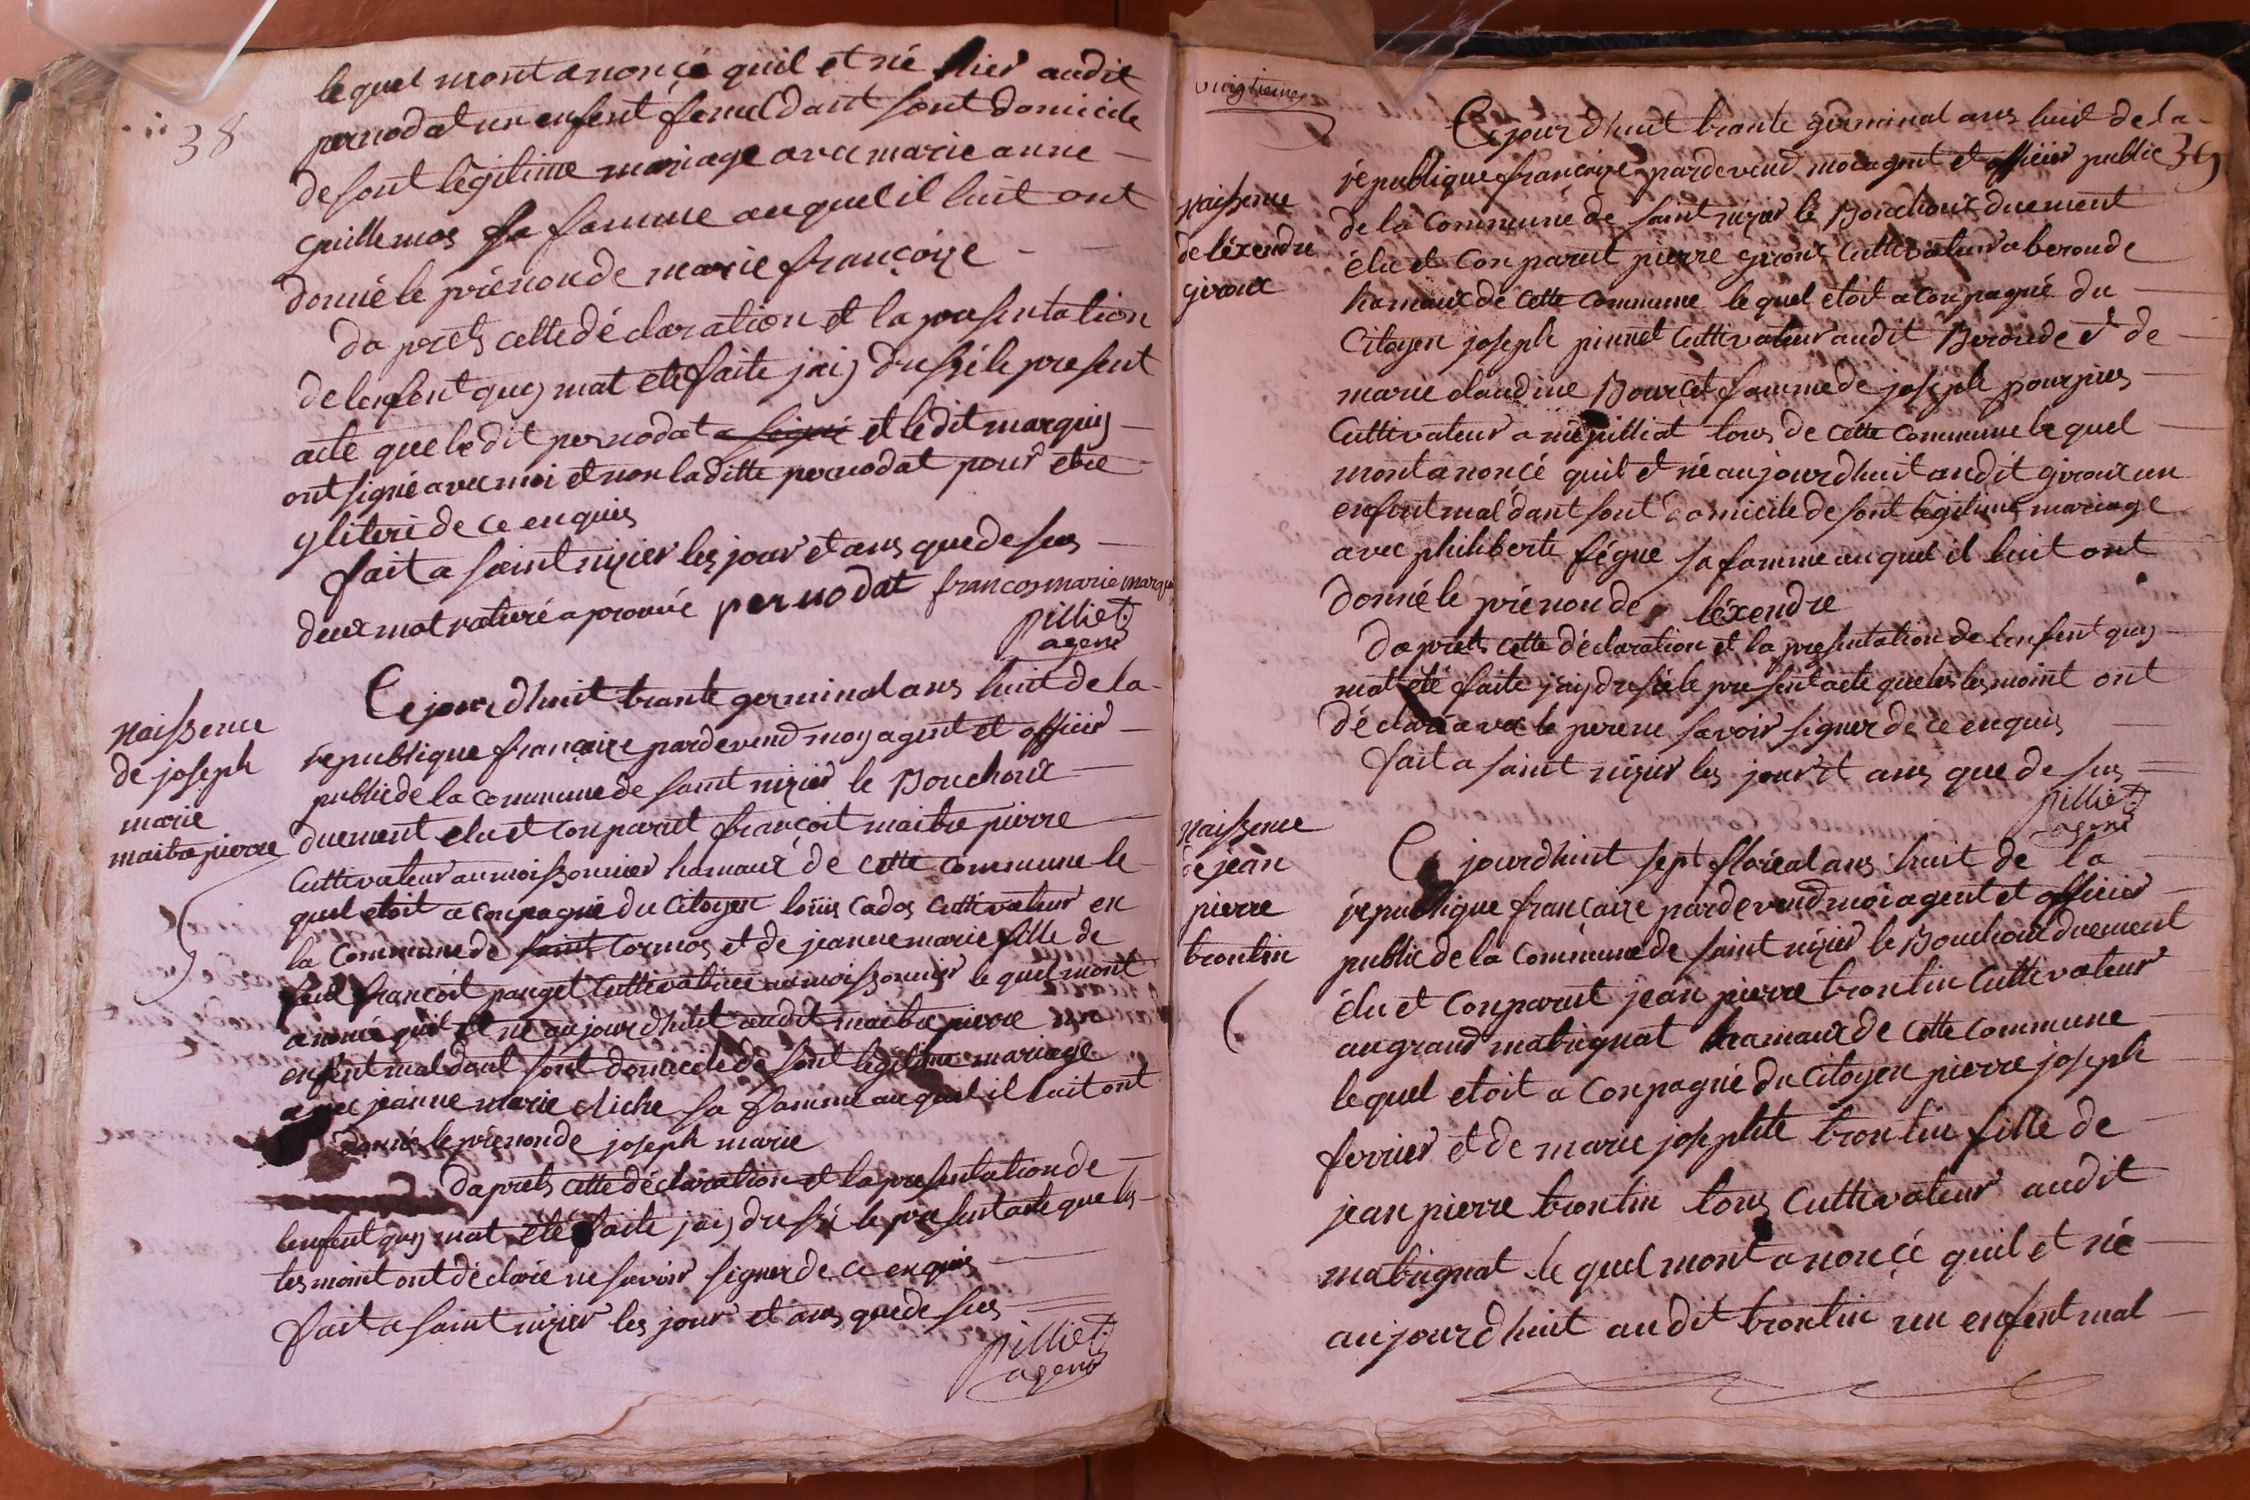 38
lequel mont anoncé quil et né hier audit
pernodat un enfent femel dant sont domicile
de sont légitime mariage avec marie anne
guillemos sa famme auquel il luit ont
donné le prénon de marie françoize
da prets cette déclaration et la presentation
de lenfent quy mat eté faite jaiy dressé le present
acte que le dit pernodat a signé et ledit marquis
ont signé avec moi et non la ditte pernodat pour etre
yliteré de ce enquis
fait a saint nizier les jour et ans que de sus
deux mot raturé aprouvé pernodat francos marie marquis
pilliet
agent
Naissence
de joseph
marie
maitre pierre
Ce jourdhuit trante germinal ans huit de la
république françaize pardevend moy agent et officier
public de la commune de saint nizier le Bouchoux
duement elu et conparut françoit maitre pierre
Cultivateur au moissonnier hamaux de cette commune le
quel etoit a conpagné du Citoyen loüis Cados Cultivateur en
la Commune de saint Cormos et de jeanne marie fille de
feul françoit pauget Cultivatrice au moissonnier le quel mont
anoncé quil et né aujourdhuit audit maitre pierre un
enfent mal dant sont domicile de sont legitime mariage
avec jeanne marie cliche sa famme au quel il luit ont
donné le prénon de joseph marie
da prets cette déclaration et la presentation de
lenfent quy mat eté faite jaiy dressé le present acte que les
tesmoint ont déclaré ne savoir signer de ce enquis
fait a saint nizier les jour et ans que de sus
pilliet
agent
vingtieme
39
Naissence
de léxendre
giroux
Ce jour dhuit trante germinal ans huit de la
république françaize pardevend moi agent et officier public
de la Commune de saint nizier le Bouchoux duement
élu et Conparut pierre giroux Cultivateur a beronde
hamaux de cette commune le quel etoit a conpagné du
Citoyen joseph pinnet Cultivateur audit Beronde et de
marie claudine Bourcet famme de joseph pourpius
Cultivateur a mépilliat tous de cette commune le quel
mont anoncé quil et né aujourdhuit audit giroux un
enfent mal dant sont domicile de sont légitime mariage
avec philiberte fégue sa famme auquel il luit ont
donné le prénon de léxendre
da prets cette déclaration et la presentation de lenfent quy
mat eté faite jaiy dressé le present acte que les tesmoint ont
déclaré avec le pere ne savoir signer de ce enquis
fait a saint nizier les jour et ans que de sus
pilliet
agent
Naissence
de jean
pierre
brontin
Ce jourdhuit sept floréal ans huit de la
république françaize pardevend moi agent et officier
public de la Commune de saint nizier le Bouchoux duement
élu et Conparut jean pierre brontin Cultivateur
au grand matrignat hamaux de cette commune
lequel etoit a Conpagné du Citoyen pierre joseph
ferrier et de marie josephte brontin fille de
jean pierre brontin tous Cultivateur audit
matrignat le quel mont anoncé quil et né
aujourdhuit audit brontin un enfent mal